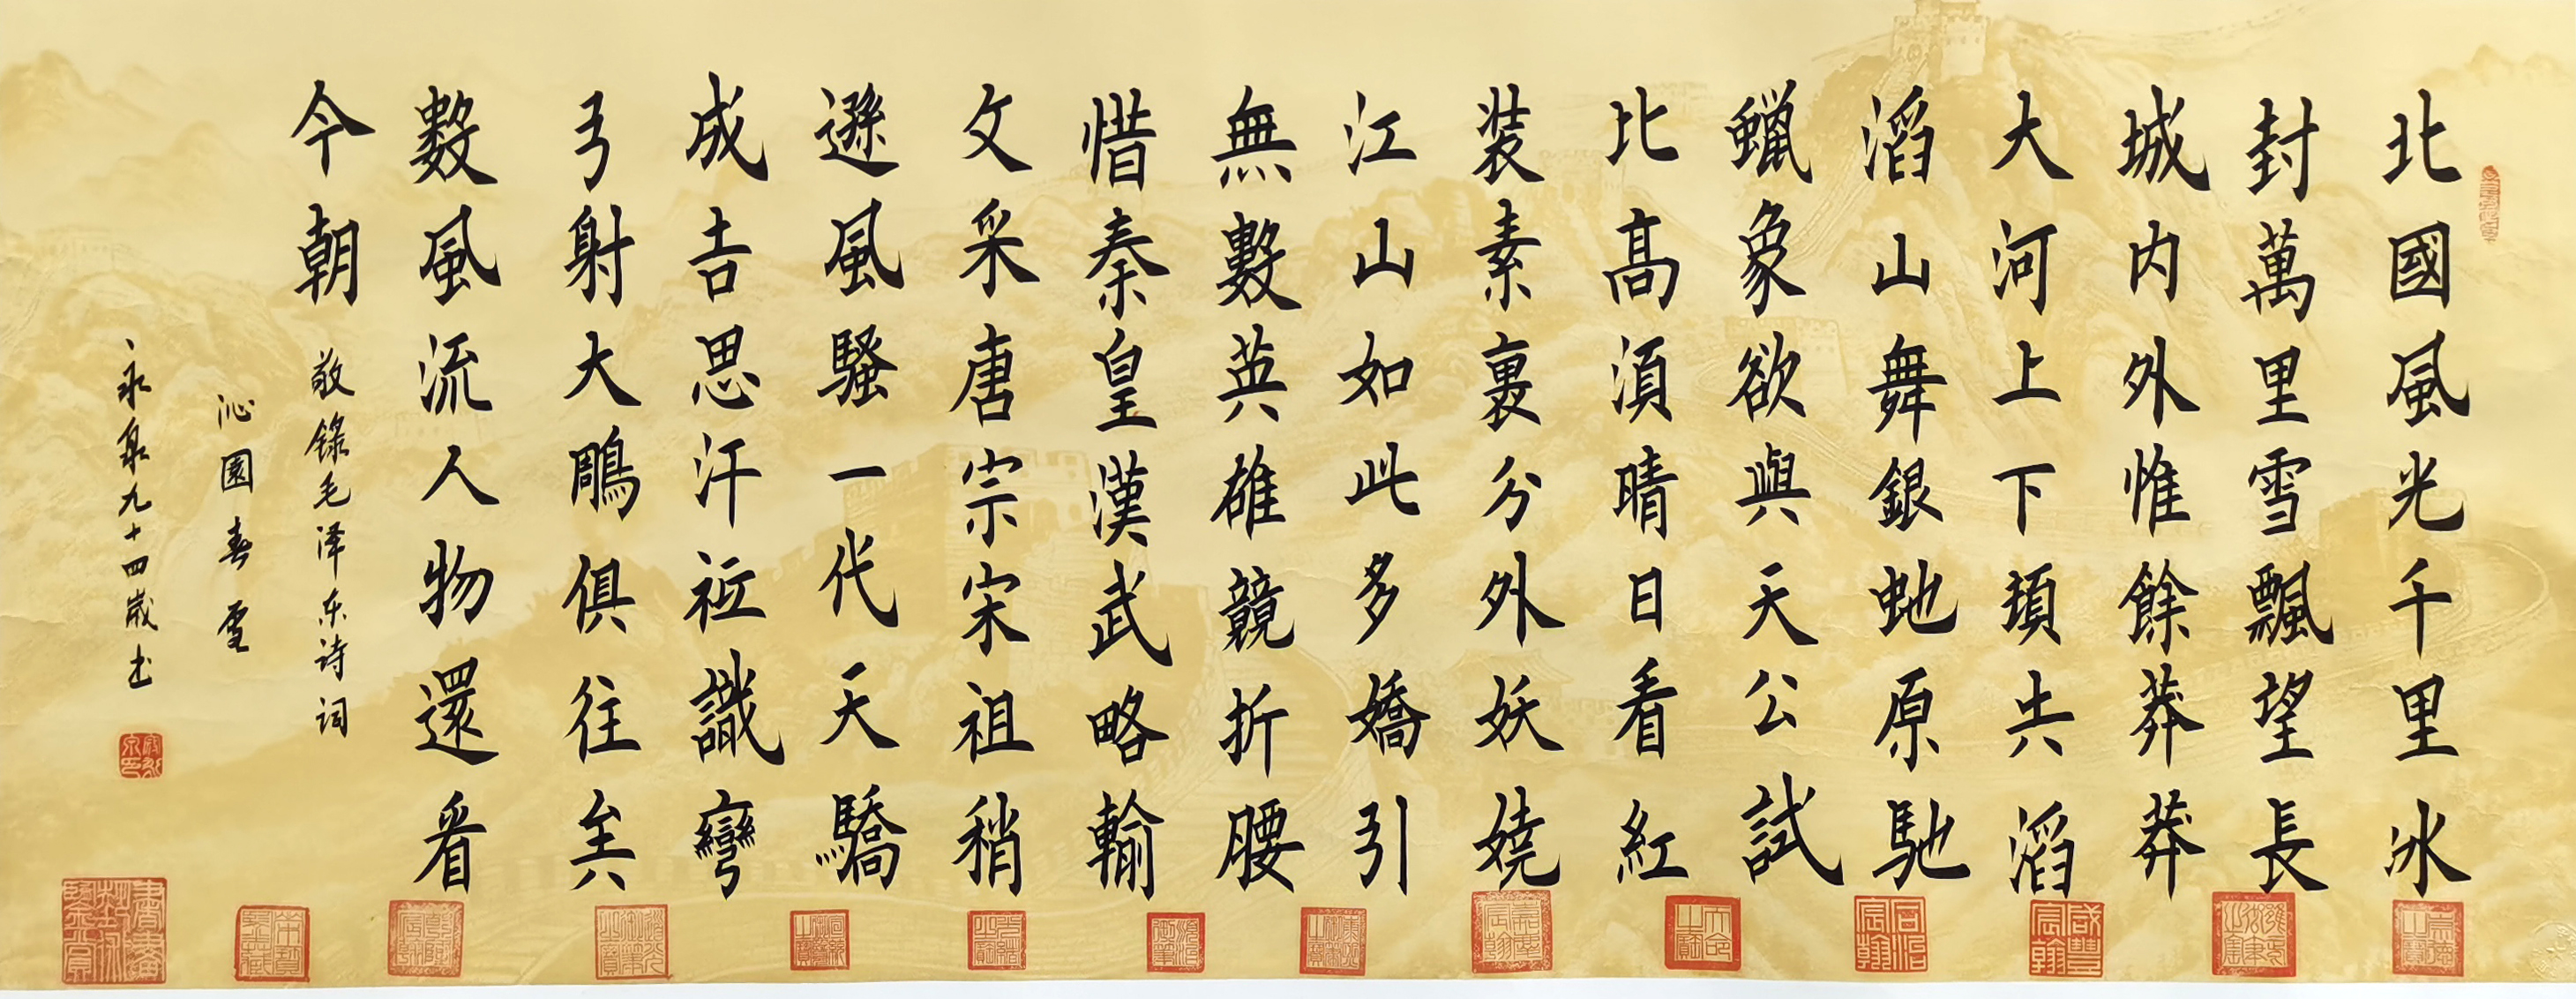 北國風光千里冰
封萬里雪飄望長
城内外惟餘莽莽
大河上下頓共滔
滔山舞銀虵原馳
蠟象欲與天公試
比高須晴日看紅
装素裹分外妖嬈
江山如此多嬌引
無數英雄競折腰
惜秦皇漢武略輸
文采唐宗宋祖稍
遜風騷一代天驕
成吉思汗祗識彎
弓射大鵰俱往矣
數風流人物還看
今朝
敬錄毛泽东诗词
沁園春雪
永泉九十四歲书